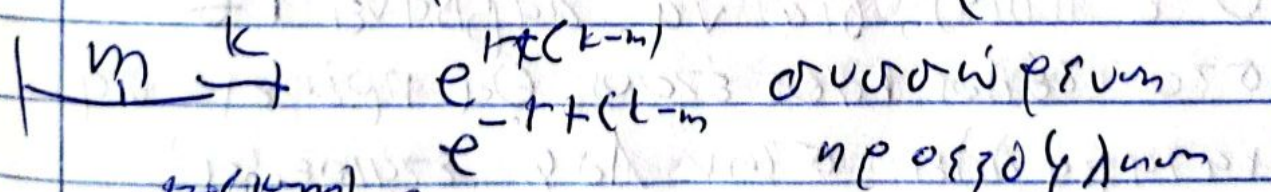 m k e^{rt(k-m)} συσσώρευση
e^{-rt(k-m} προεξόφληση